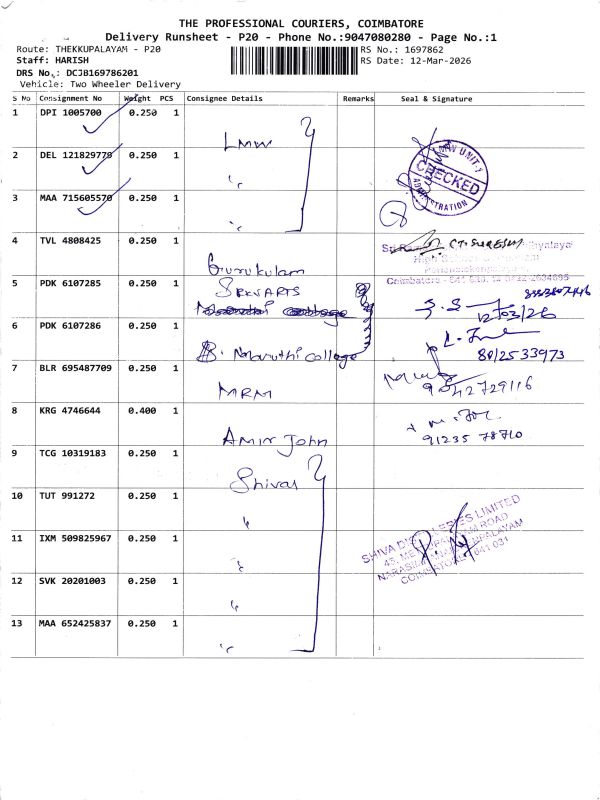 THE PROFESSIONAL COURIERS, COIMBATORE
Delivery Runsheet - P20 - Phone No.:9047080280 - Page No.:1
Route: THEKKUPALAYAM - P20
RS No.: 1697862
Staff: HARISH
RS Date: 12-Mar-2026
DRS No.: DCJB169786201
Vehicle: Two Wheeler Delivery
S No Consignment No Weight PCS Consignee Details Remarks Seal & Signature
1 DPI 1005700 0.250 1 LMW
2 DEL 121829779 0.250 1 "
3 MAA 715605570 0.250 1 "
LMW UNIT-1
CHECKED
ADMINISTRATION
4 TVL 4808425 0.250 1 Gurukulam
High School
Coimbatore - 641
5 PDK 6107285 0.250 1 SRKVARTS
12/03/26
6 PDK 6107286 0.250 1 Maruthi college
80/2533973
7 BLR 695487709 0.250 1 MRM
9842729116
8 KRG 4746644 0.400 1 Amir John
91235 78710
9 TCG 10319183 0.250 1 Shivas
10 TUT 991272 0.250 1 "
11 IXM 509825967 0.250 1 "
SHIVA DISTILLERIES LIMITED
ROAD
COIMBATORE 641 031
12 SVK 20201003 0.250 1 "
13 MAA 652425837 0.250 1 "